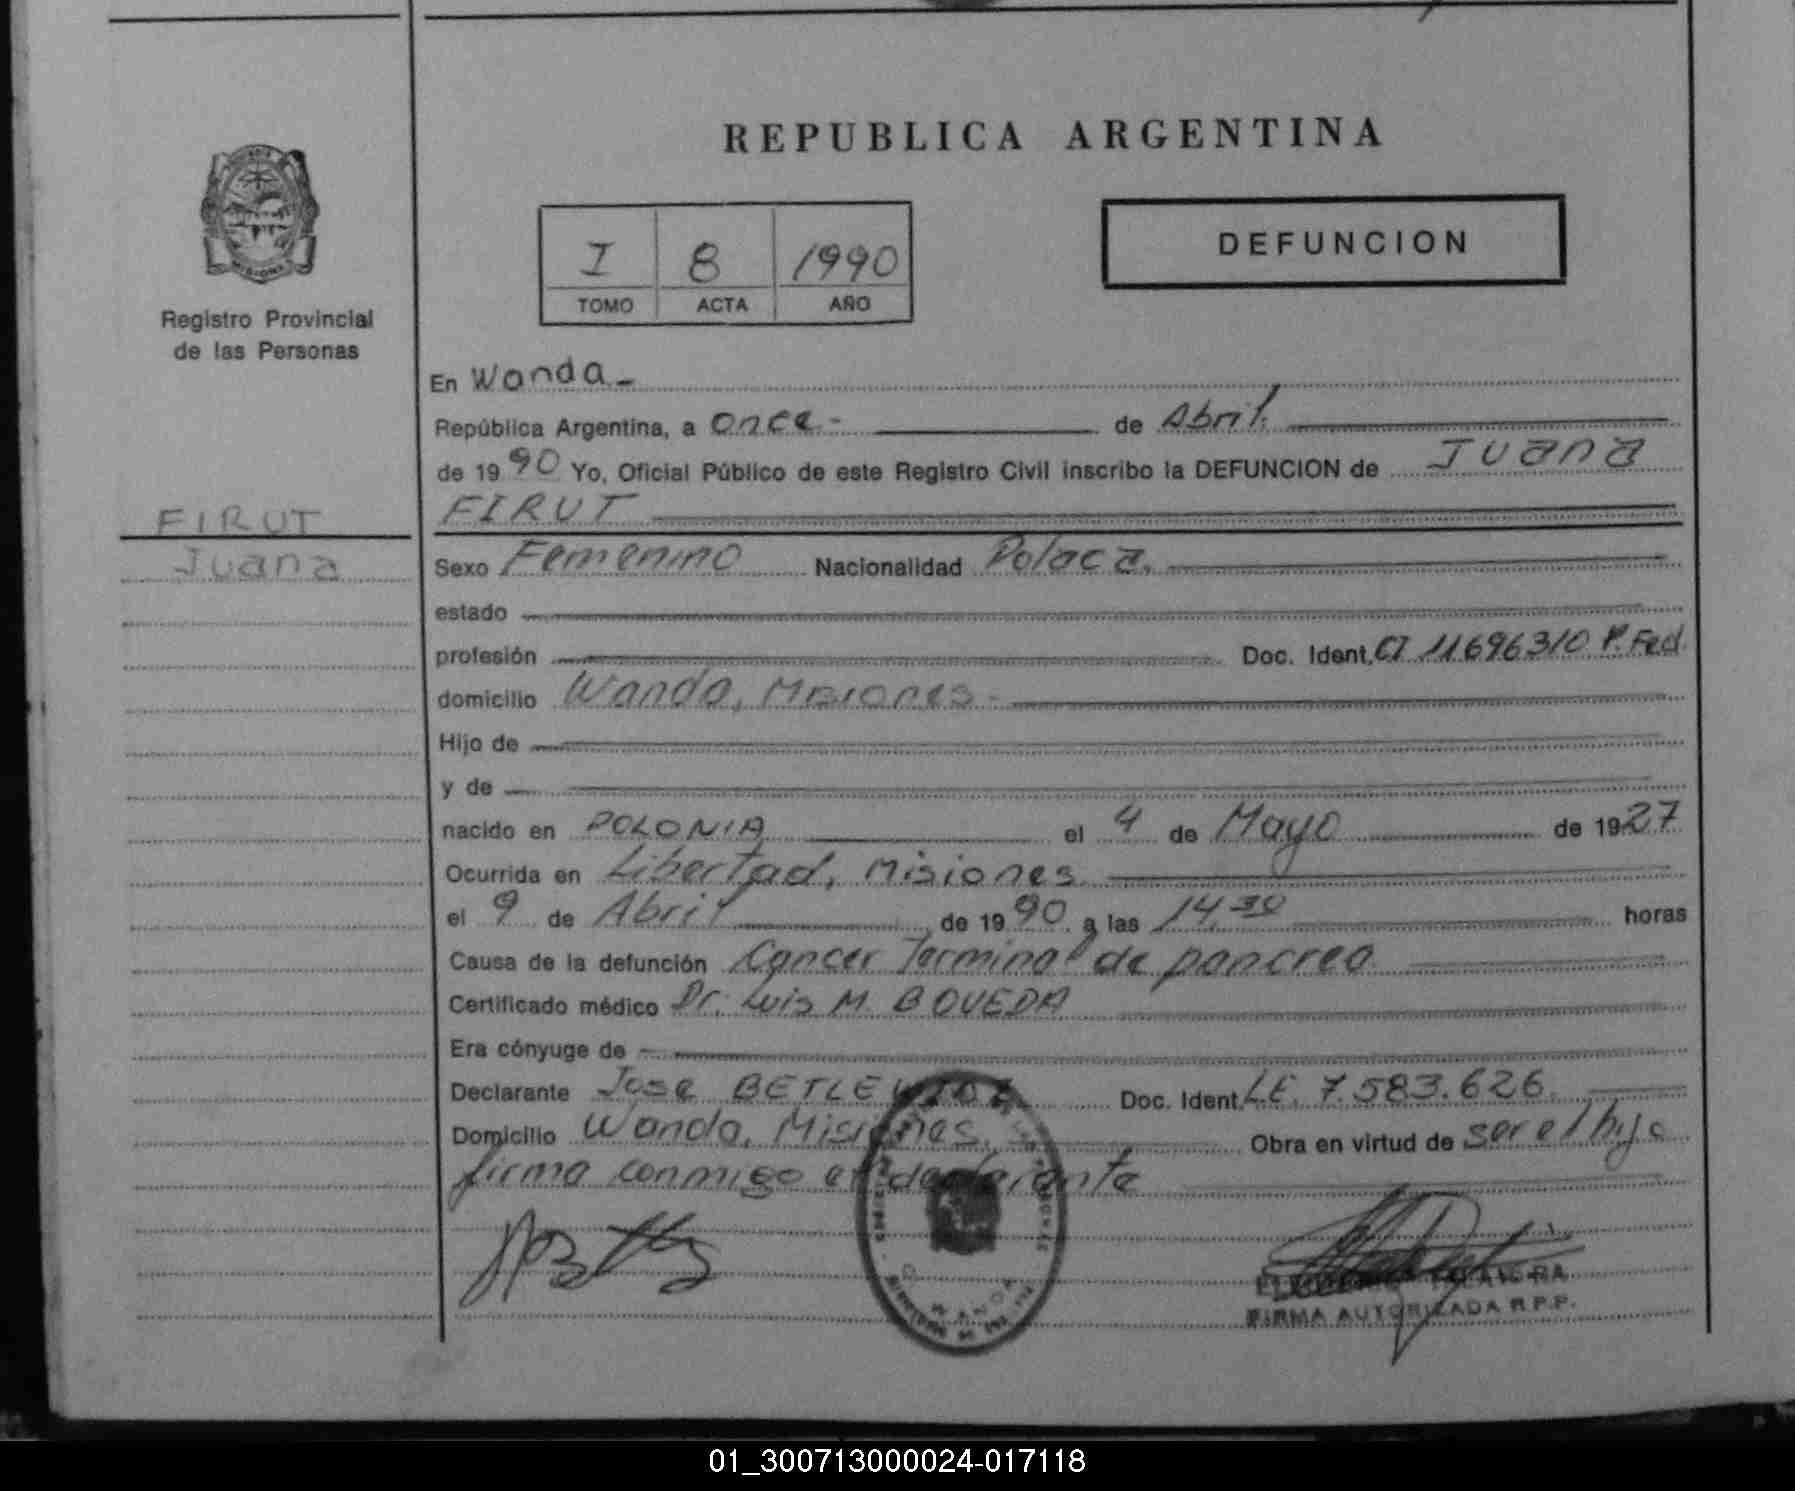 REPUBLICA ARGENTINA
DEFUNCION
I 8 1990
TOMO ACTA AÑO
MISIONES
Registro Provincial
de las Personas
En Wanda -
República Argentina, a once - de Abril.
de 1990 Yo, Oficial Público de este Registro Civil inscribo la DEFUNCION de Juana
FIRUT
FIRUT
Juana
Sexo Femenino Nacionalidad Polaca.
estado
profesión Doc. Ident. CI 11696310 P. Fed.
domicilio Wanda, Misiones -
Hijo de
y de
nacido en POLONIA el 4 de Mayo de 1927
Ocurrida en Libertad, Misiones
el 9 de Abril de 1990 a las 14,30 horas
Causa de la defunción Cancer Terminal de pancrea
Certificado médico Dr. Luis M. BOVEDA
Era cónyuge de
Declarante Jose Doc. Ident. LE. 7.583.626.
Domicilio Wanda, Misiones. Obra en virtud de ser el hijo
firma conmigo el declarante
WANDA
FIRMA AUTORIZADA R.P.P.
01_300713000024-017118